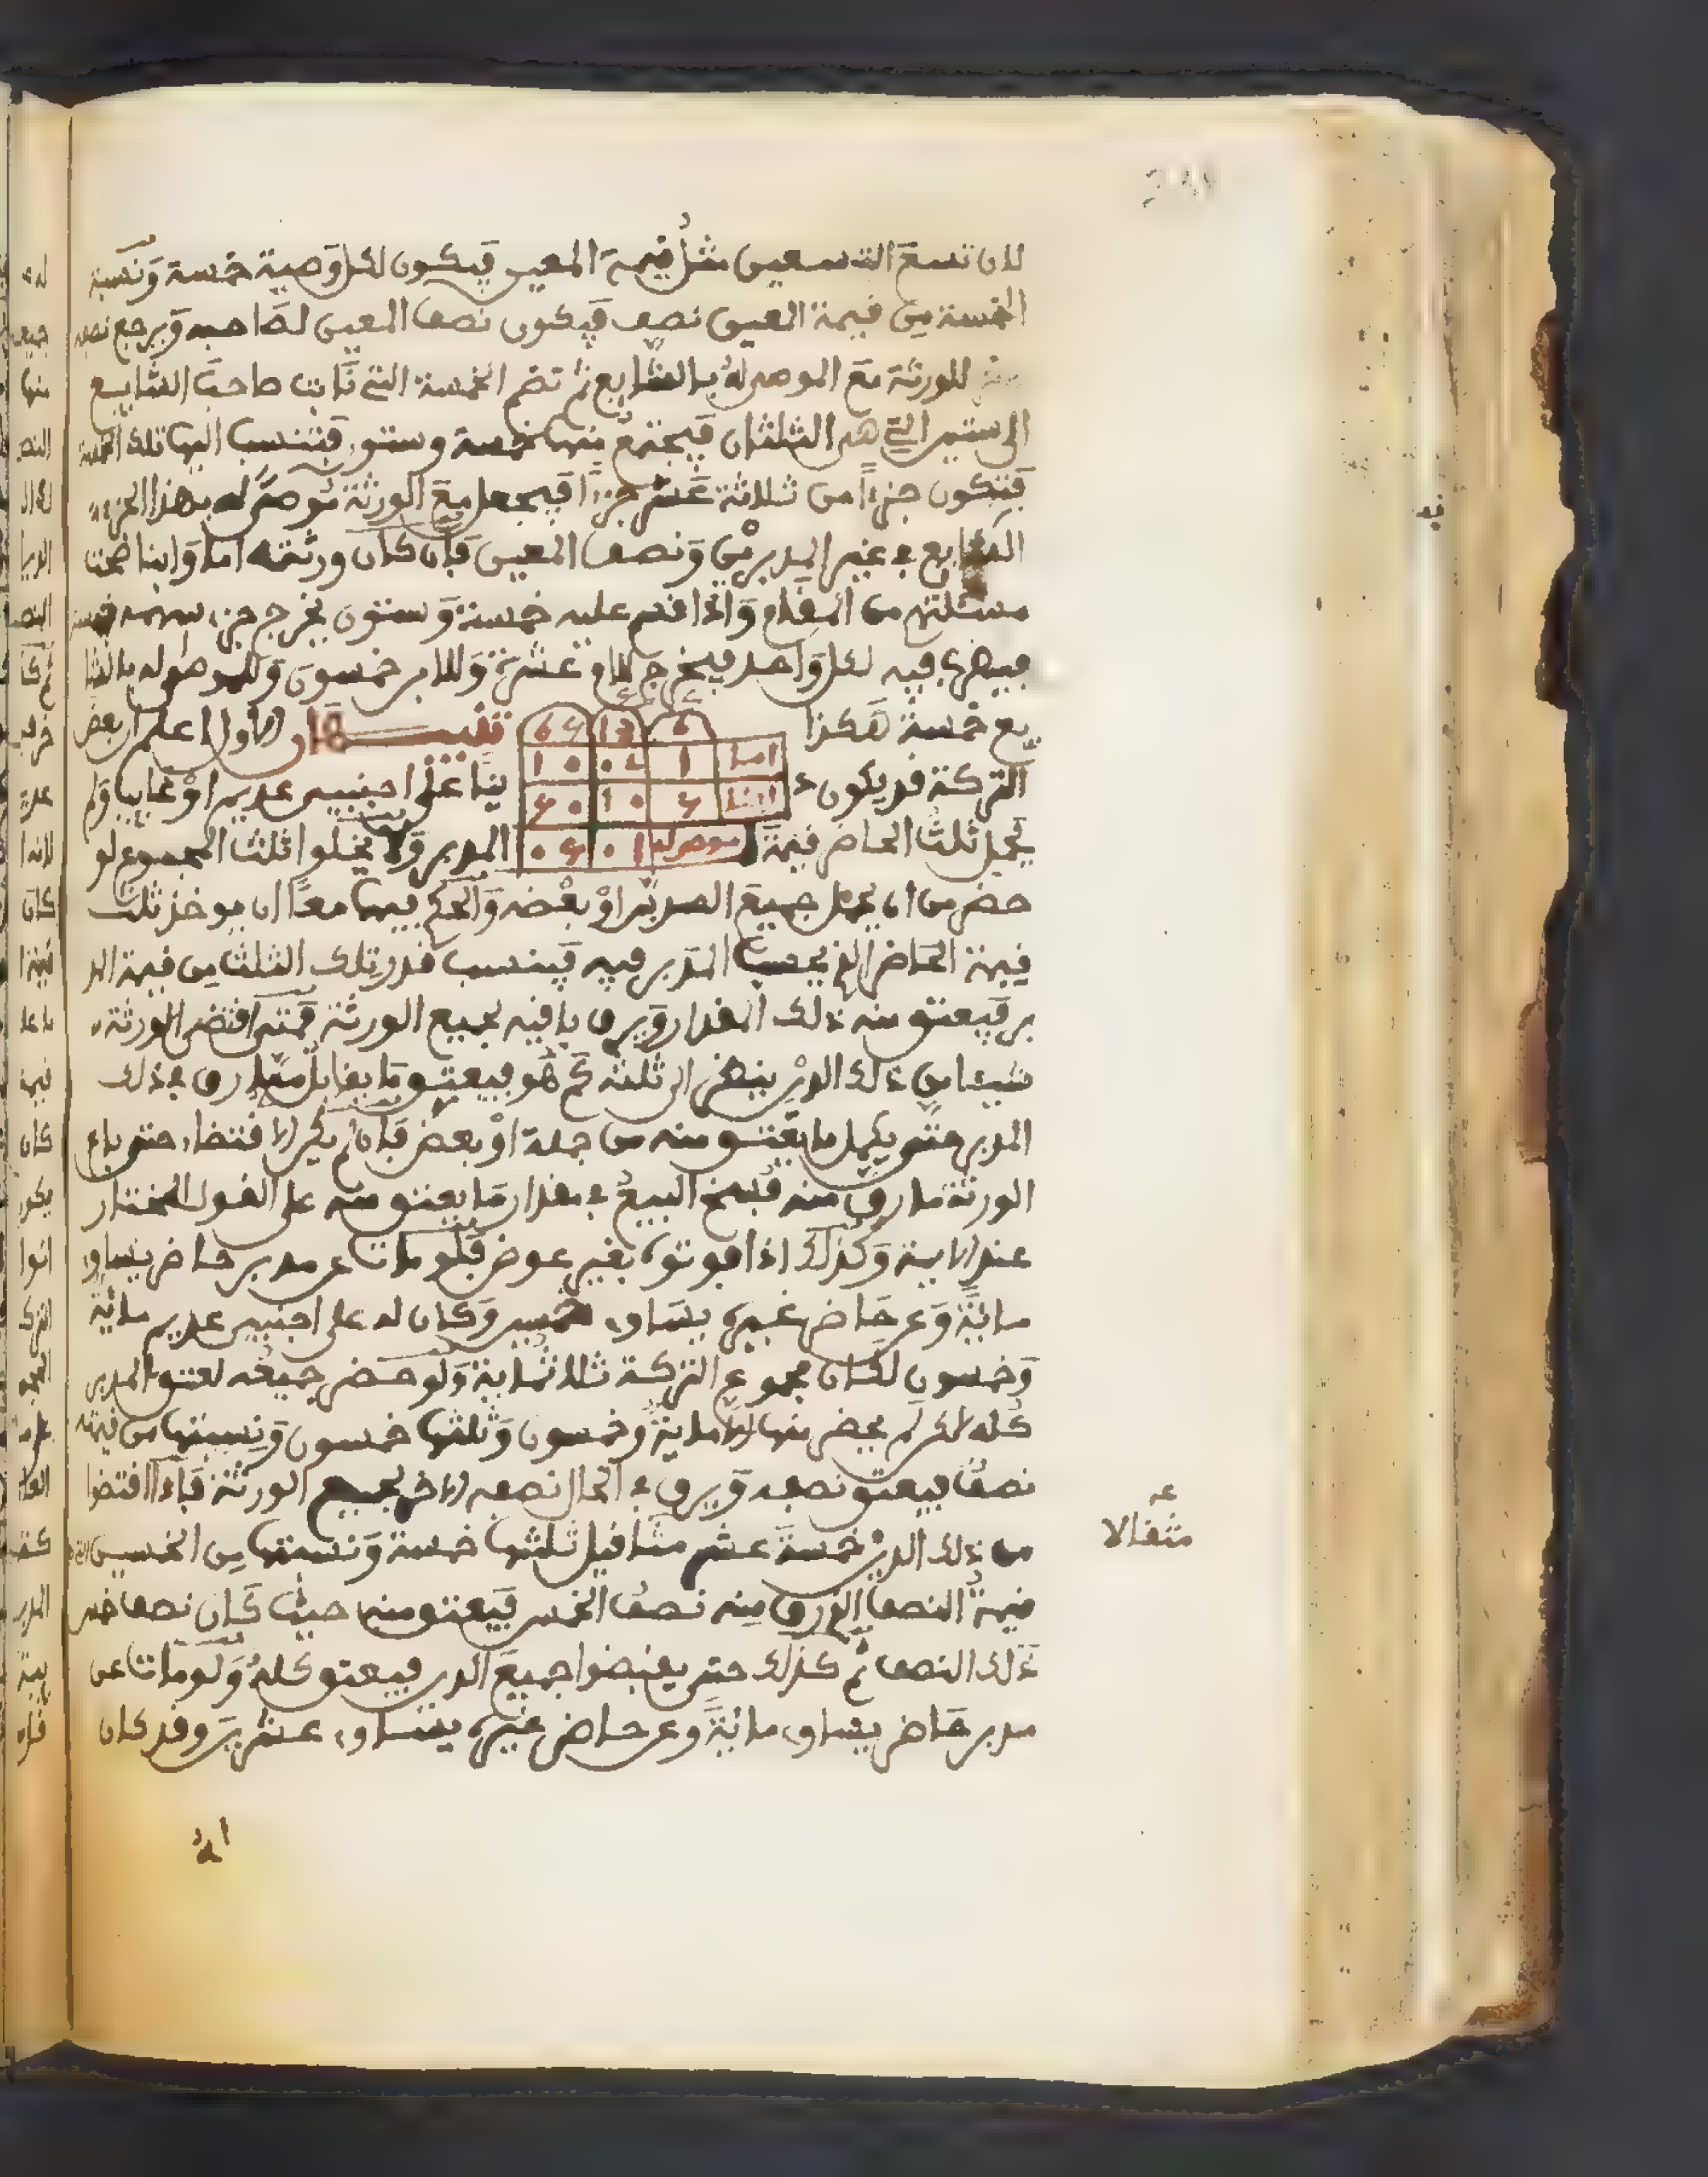 لان تسع التسعين مثل قيمة المعين فيكون لكل وصية خمسة ونسبة
الخمسة من قيمة المعين نصف فيكون نصف المعين لصاحبه ويرجع نصفه
للورثة مع الموصى له بالشايع ثم تضم الخمسة التي نابت صاحب الشايع
الى ستين التي هي الثلثان فيجتمع منها خمسة وستون فتنسب اليها تلك الخمسة
فتكون جزءا من ثلاثة عشر جزءا فيجعل مع الورثة موصى له بهذا الجزء
الشايع في غير المدبر من ونصف المعين فان كان ورثته اما وابنا صحت
مسئلتهم من المقام واذا قسم عليه خمسة وستون يخرج جزء سهمه خمسة
فيضرب فيه لكل واحد فيخرج للام عشرة وللابن خمسون وللموصى له بالشا
يع خمسة هكذا
6 13 65
اما 1 2 10
ابنا 5 10 50
موصى له 1 05
تنبيهان الاول اعلم ان بعض
التركة قد يكون د
ينا على اجنبيين عديم او غايبا ولم
يحمل ثلث الحاضر قيمة
المدبر ولا يخلوا ثلث المجموع لو
حضر من ان يحمل جميع المدبر او بعضه والحكم فيهما معا ان يوخذ ثلث
قيمة الحاضر الذي يحسب المدبر فيه فينسب قدر تلك الثلث من قيمة المد
بر فيعتق منه ذلك المقدار ويرق باقيه لجميع الورثة فمتى اقتضى الورثة
شيئا من ذلك الدين ينظر الى ثلثه كم هو فيعتق ما يقابل مما رق في ذلك
المدبر حتى يكمل ما يعتق منه من جملة او بعض فان لم يكن الاقتضاء حتى باع
الورثة ما رق منه فيفسخ البيع في مقدار ما يعتق منه على القول المختار
عند الايمة وكذلك اذا فوتوه بغير عوض فلو مات عن مدبر حاضر يساوي
مائة وعن حاضر غيره يساوي خمسين وكان له على اجنبيين عديم مائة
وخمسون لكان مجموع التركة ثلاثماية ولو حضر جميعه لعتق المدبر
كله لكن لم يحضر منها الا ماية وخمسون وثلثها خمسون ونسبتها من قيمته
نصف فيعتق نصفه ويرق في الحال نصفه الاخر لجميع الورثة فاذا اقتضوا
من ذلك الدين خمسة عشر مثاقيل ثلثها خمسة ونسبتها من الخمسين
قيمة النصف الذي رق منه نصف الخمس فيعتق منه حيث كان نصف خمس
ذلك النصف ثم كذلك حتى يقبضوا جميع الدين فيعتق كله ولو مات عن
مدبر حاضر يساوي مائة وعن حاضر غيره يساوي عشرين وقد كان
مثقالا